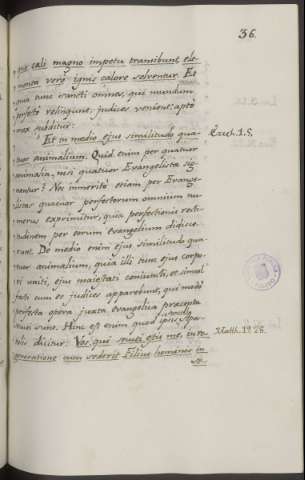 36.
qua cæli magno impetu transibunt, ele-
menta vero ignis calore solventur. Et
quia tunc sancti omnes, qui mundum
perfecte relinquunt, judices venient: apte
mox subditur:
Et in medio ejus similitudo qua-
tuor animalium. Quid enim per quatuor Ezech. 1. 5.
animalia, nisi quatuor Evangelistæ sig-
nantur? Nec immerito etiam per Evange-
listas quatuor perfectorum omnium nu-
merus exprimitur, quia perfectionis recti-
tudinem per eorum evangelium didice-
runt. De medio enim ejus similitudo qua-
tuor animalium, quia illi tunc ejus corpo-
ri uniti, ejus maiestati coniuncti, et simul
cum eo judices apparebunt, qui modo
perfecta opera juxta evangelica præcepta
Hinc est enim quod ipsis Apo-
stolis dicitur: Vos, qui secuti estis me, in re- Matth. 19. 28.
generatione cum sederit Filius hominis in
se-